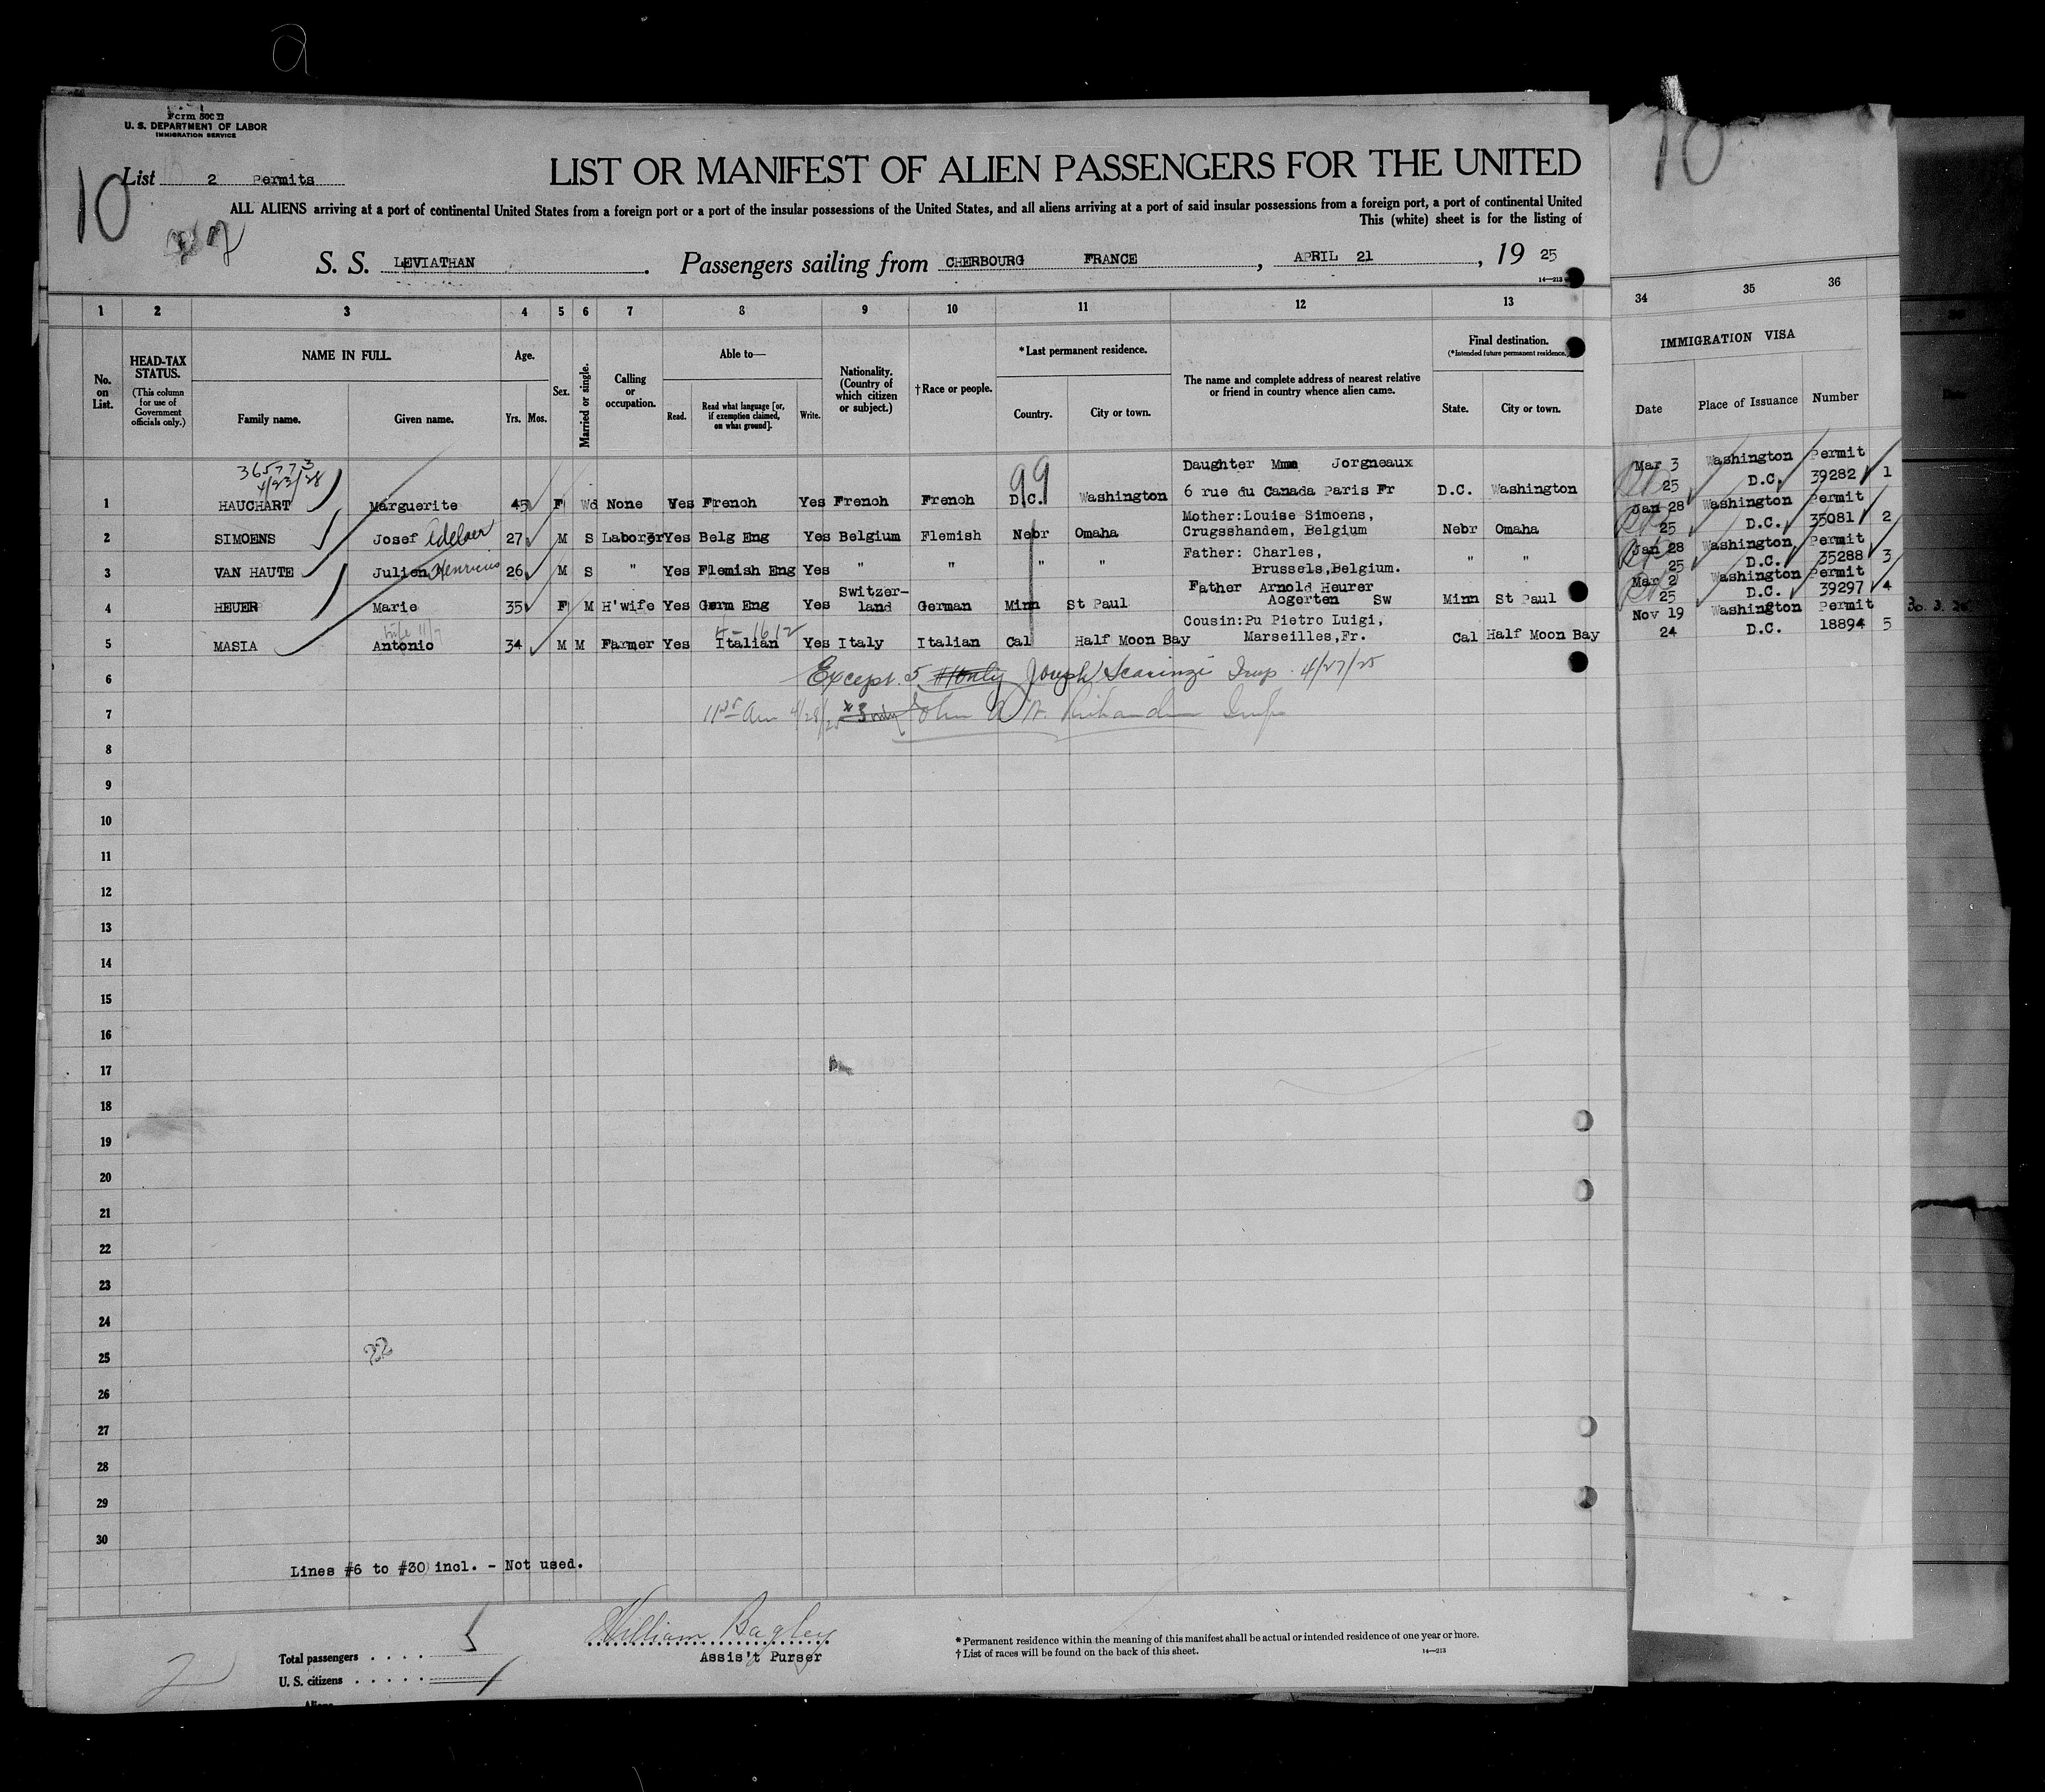 a
Form 500 B
U. S. DEPARTMENT OF LABOR
IMMIGRATION SERVICE
List 2 Permits
10
10
LIST OR MANIFEST OF ALIEN PASSENGERS FOR THE UNITED
ALL ALIENS arriving at a port of continental United States from a foreign port or a port of the insular possessions of the United States, and all aliens arriving at a port of said insular possessions from a foreign port, a port of continental United
This (white) sheet is for the listing of
S. S. LEVIATHAN . Passengers sailing from CHERBOURG FRANCE , APRIL 21 , 19 25
14—213
1 2 3 4 5 6 7 8 9 10 11 12 13 34 35 36
No. on List.
HEAD-TAX STATUS.
(This column for use of Government officials only.)
NAME IN FULL.
Family name. Given name.
Age.
Yrs. Mos.
Sex.
Married or single.
Calling or occupation.
Able to—
Read. Read what language [or, if exemption claimed, on what ground]. Write.
Nationality. (Country of which citizen or subject.)
†Race or people.
*Last permanent residence.
Country. City or town.
The name and complete address of nearest relative or friend in country whence alien came.
Final destination.
(*Intended future permanent residence.)
State. City or town.
IMMIGRATION VISA
Date Place of Issuance Number
365773
4/23/28
99
Daughter Mme Jorgneaux Mar 3 Washington Permit
1 HAUCHART Marguerite 45 F Wd None Yes French Yes French French D.C. Washington 6 rue du Canada Paris Fr D.C. Washington 25 D.C. 39282 1
Mother:Louise Simoens, Jan 28 Washington Permit
2 SIMOENS Josef Adelaer 27 M S Laborer Yes Belg Eng Yes Belgium Flemish Nebr Omaha Crugsshandem, Belgium Nebr Omaha 25 D.C. 35081 2
Father: Charles, Jan 28 Washington Permit
3 VAN HAUTE Julien Henricus 26 M S " Yes Flemish Eng Yes " " " " Brussels,Belgium. " " 25 D.C. 35288 3
Switzer- Father Arnold Heurer Mar 2 Washington Permit
4 HEUER Marie 35 F M H'wife Yes Germ Eng Yes land German Minn St Paul Aogerten Sw Minn St Paul 25 D.C. 39297 4
Cousin:Pu Pietro Luigi, Nov 19 Washington Permit
5 MASIA Antonio 34 M M Farmer Yes Italian Yes Italy Italian Cal Half Moon Bay Marseilles,Fr. Cal Half Moon Bay 24 D.C. 18894 5
6 Except. 5 Joseph Scarinzi Insp. 4/27/25
7 John Insp
8
9
10
11
12
13
14
15
16
17
18
19
20
21
22
23
24
25
26
27
28
29
30
Lines #6 to #30 incl. - Not used.
William Bagley
Assis't Purser
Total passengers . . . . 5
U. S. citizens . . . . .
Aliens
2
* Permanent residence within the meaning of this manifest shall be actual or intended residence of one year or more.
† List of races will be found on the back of this sheet.
14—213